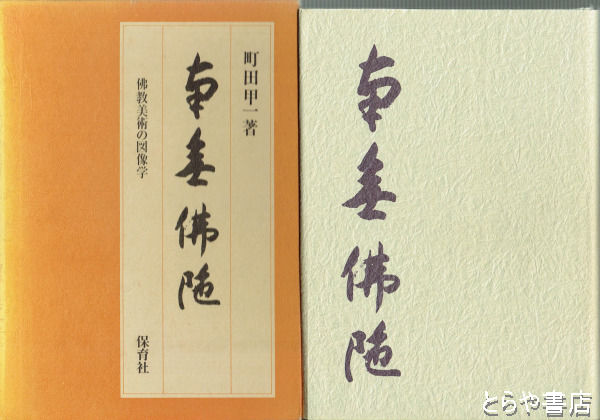 町田甲一著
南無佛陀
佛教美術の図像学
保育社
南無佛陀
とらや書店